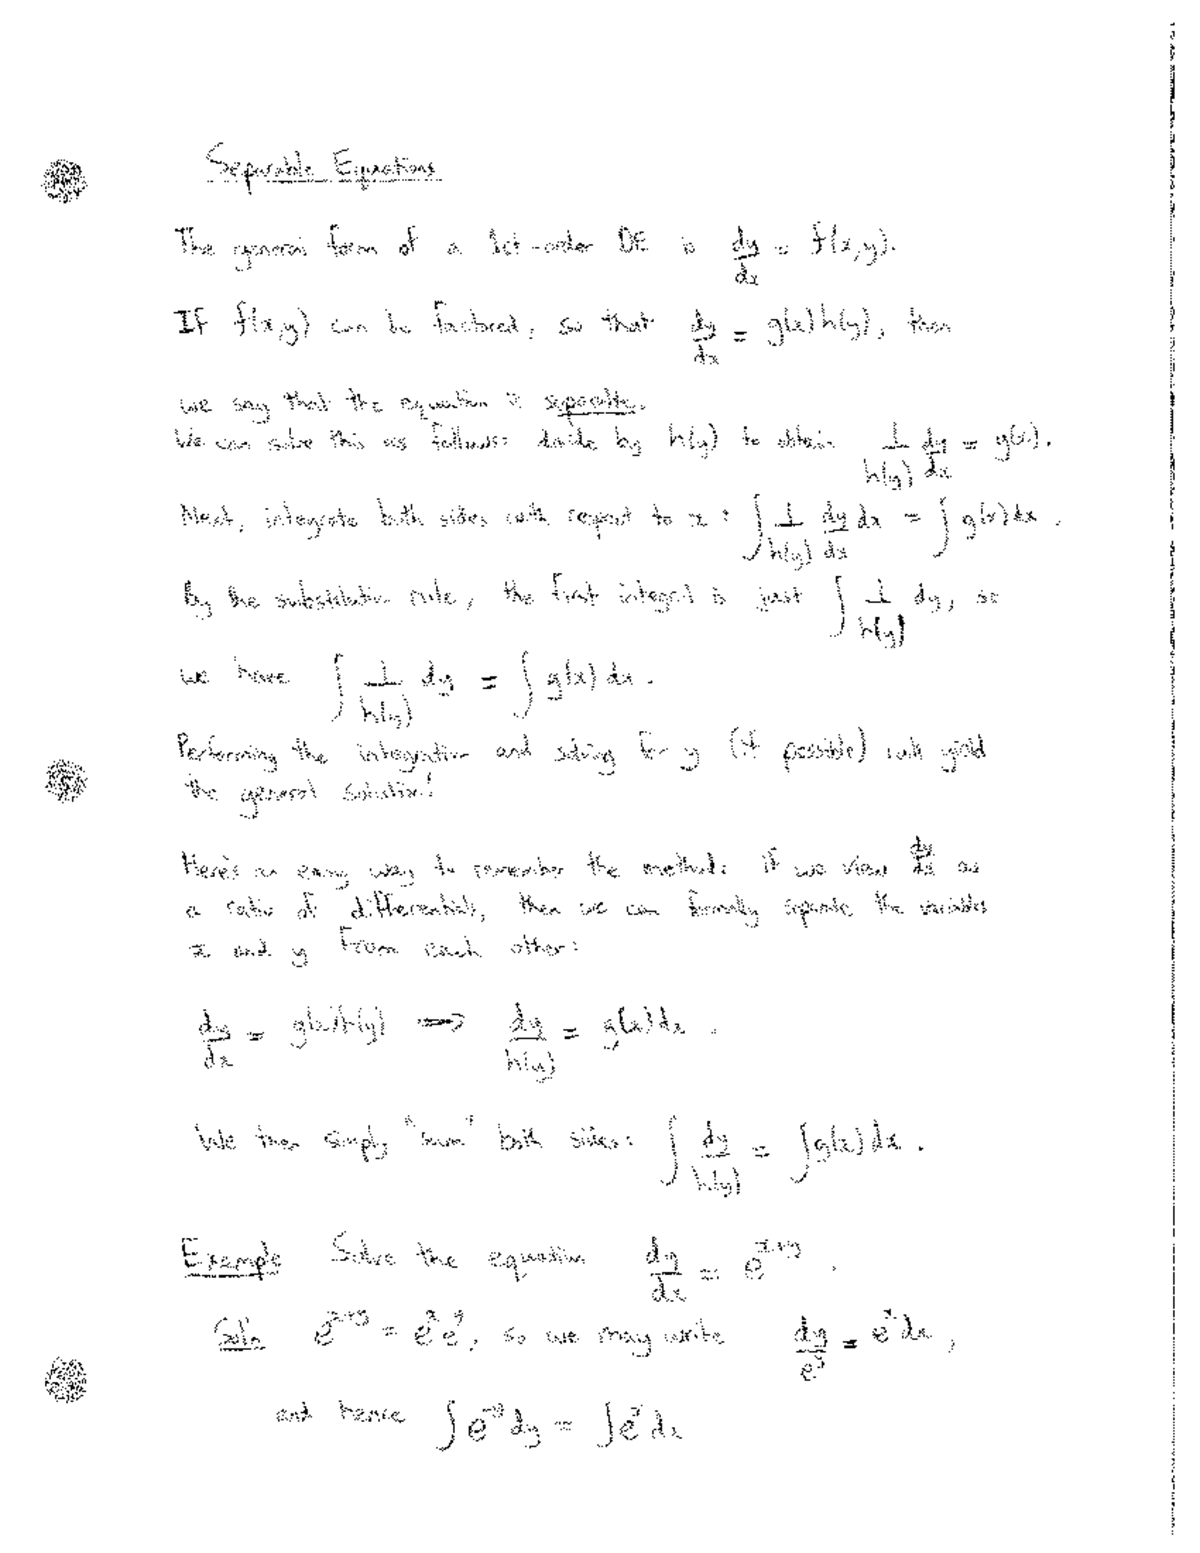 Separable Equations
The general form of a 1st-order DE is dy/dx = f(x,y).
If f(x,y) can be factored, so that dy/dx = g(x)h(y), then
we say that the equation is separable.
We can solve this as follows: divide by h(y) to obtain 1/h(y) dy/dx = g(x).
Next, integrate both sides with respect to x: ∫ 1/h(y) dy/dx dx = ∫ g(x) dx.
By the substitution rule, the first integral is just ∫ 1/h(y) dy, so
we have ∫ 1/h(y) dy = ∫ g(x) dx.
Performing the integration and solving for y (if possible) will yield
the general solution!
Here's an easy way to remember the method: if we view dy/dx as
a ratio of differentials, then we can formally separate the variables
x and y from each other:
dy/dx = g(x)h(y) ⟹ dy/h(y) = g(x)dx.
We then simply "sum" both sides: ∫ dy/h(y) = ∫g(x)dx.
Example Solve the equation dy/dx = e^{x+y}.
Sol'n e^{x+y} = e^x e^y, so we may write dy/e^y = e^x dx,
and hence ∫e^{-y} dy = ∫e^x dx